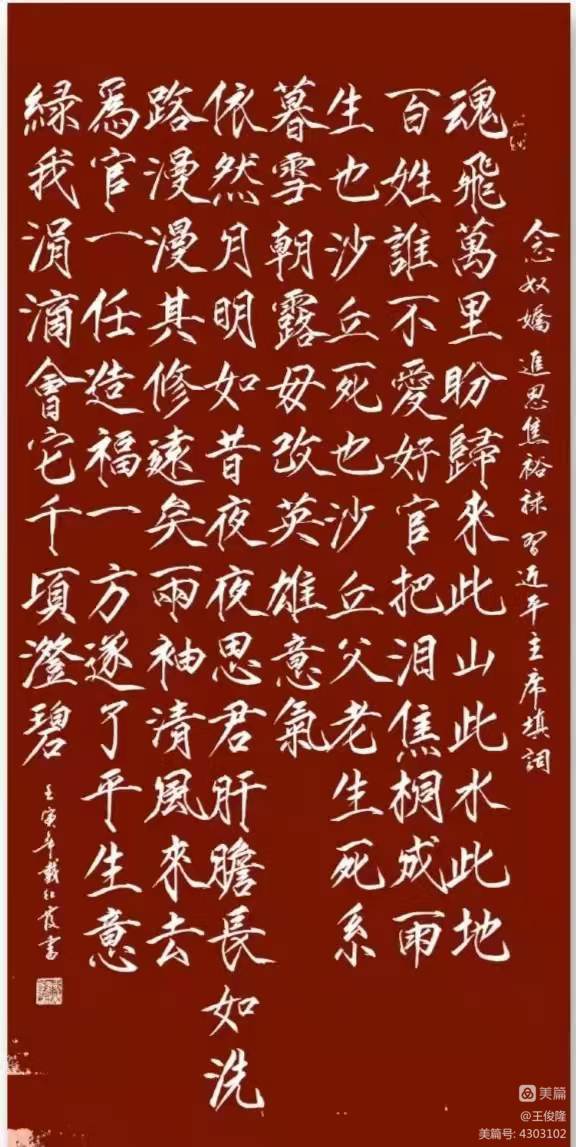 念奴嬌 追思焦裕祿 習近平主席填詞
魂飛萬里盼歸來此山此水此地
百姓誰不愛好官把泪焦桐成雨
生也沙丘死也沙丘父老生死系
暮雪朝露毋改英雄意氣
依然月明如昔夜夜思君肝膽長如洗
路漫漫其修遠矣兩袖清風來去
爲官一任造福一方遂了平生意
緑我涓滴會它千頃澄碧
壬寅年戴紅霞書
美篇
@王俊隆
美篇号: 4303102